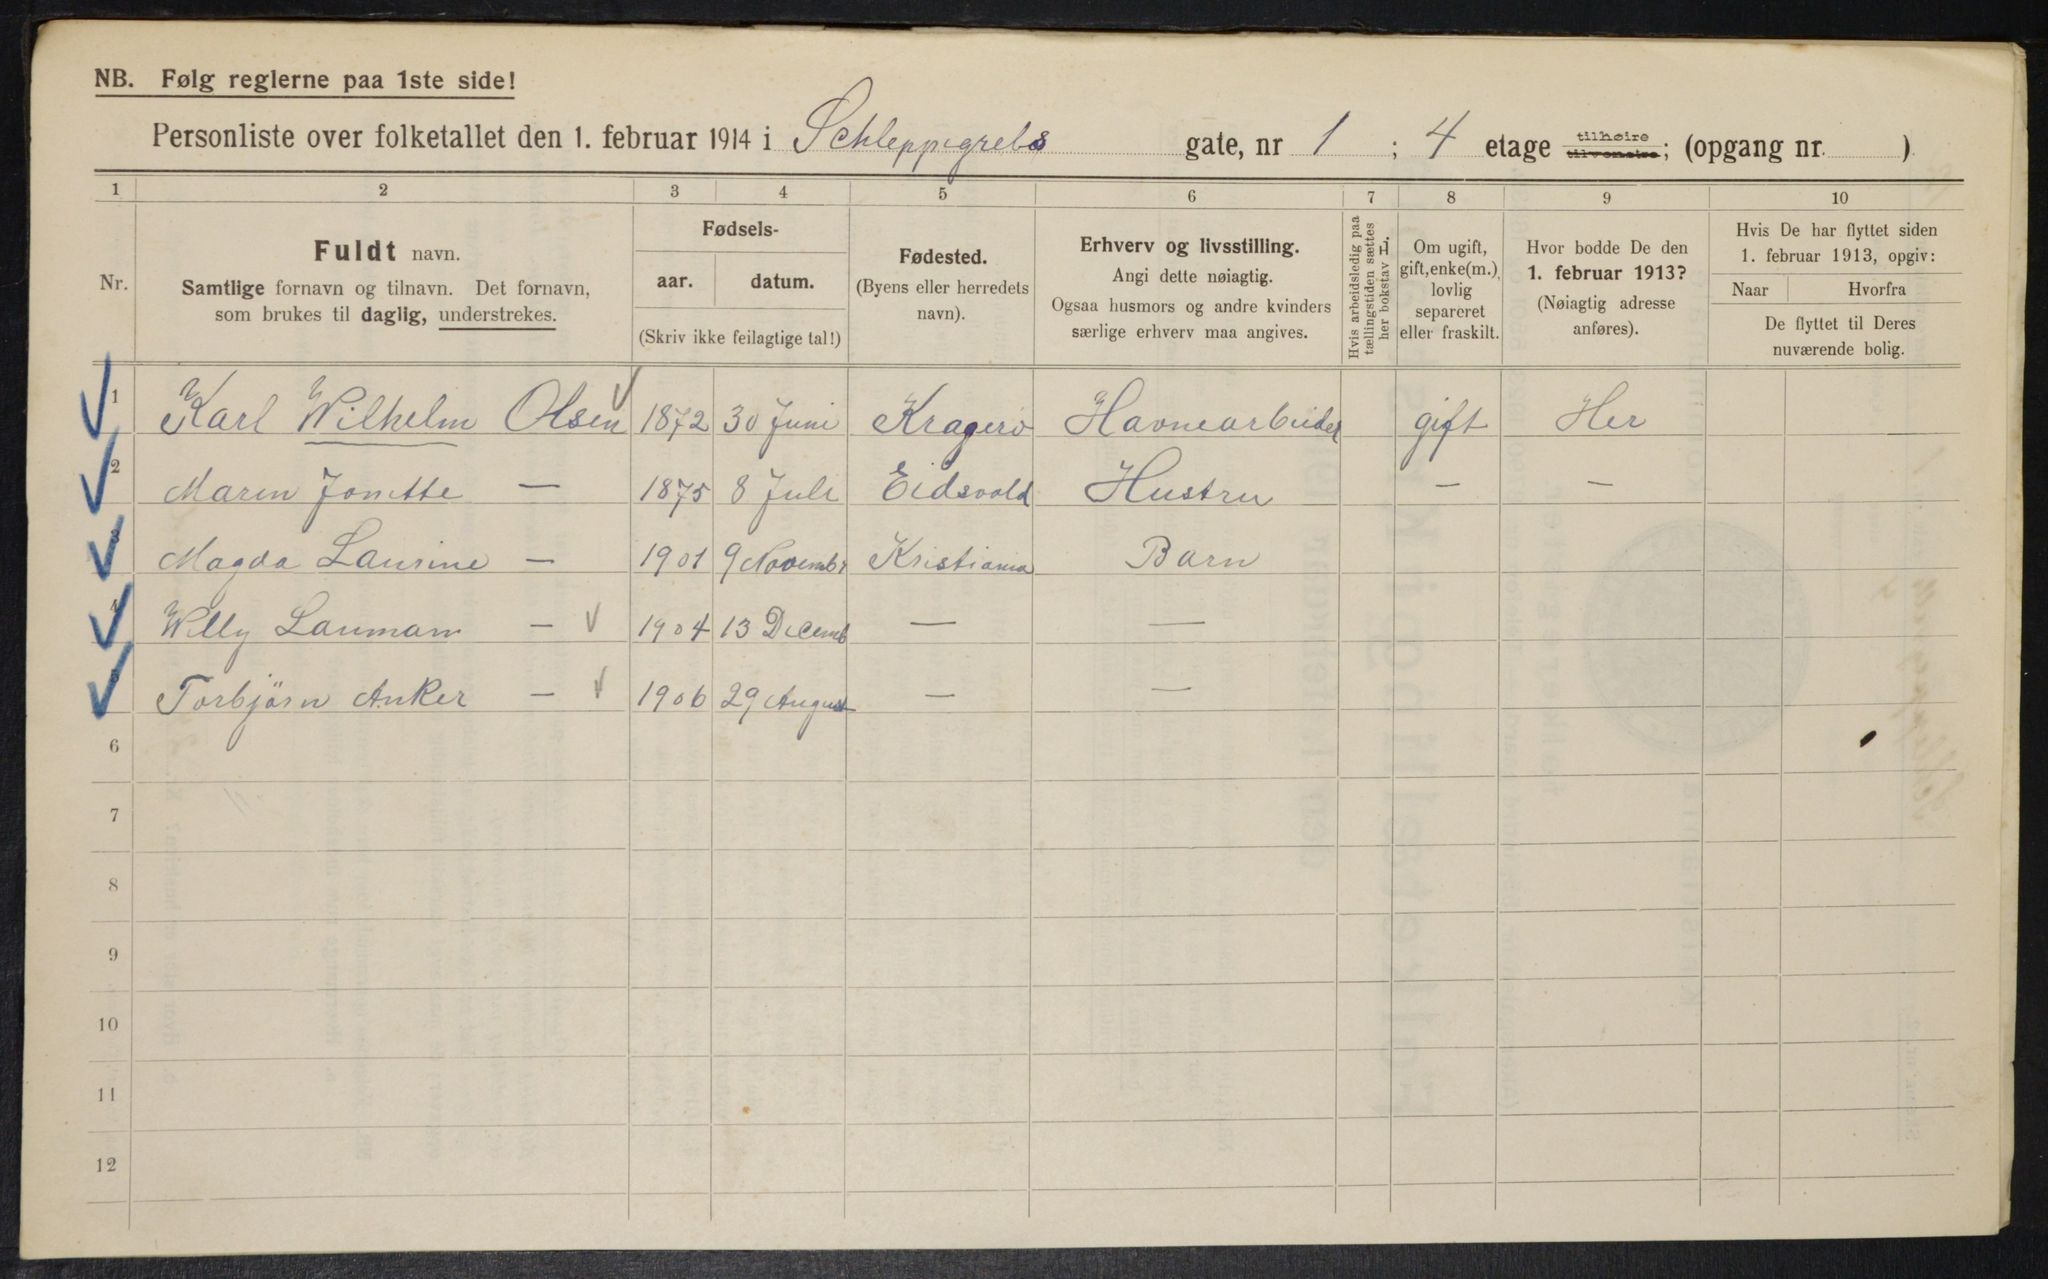 NB. Følg reglerne paa 1ste side!
Personliste over folketallet den 1. februar 1914 i Schleppegrels gate, nr 1 ; 4 etage tilhøire tilvenstre; (opgang nr. )
1 2 3 4 5 6 7 8 9 10
Nr.
Fuldt navn.
Samtlige fornavn og tilnavn. Det fornavn,
som brukes til daglig, understrekes.
Fødsels-
aar. datum.
(Skriv ikke feilagtige tal!)
Fødested.
(Byens eller herredets
navn).
Erhverv og livsstilling.
Angi dette nøiagtig.
Ogsaa husmors og andre kvinders
særlige erhverv maa angives.
Hvis arbeidsledig paa
tællingstiden sættes
her bokstav L.
Om ugift,
gift, enke(m.),
lovlig
separeret
eller fraskilt.
Hvor bodde De den
1. februar 1913?
(Nøiagtig adresse
anføres).
Hvis De har flyttet siden
1. februar 1913, opgiv:
Naar Hvorfra
De flyttet til Deres
nuværende bolig.
1 Karl Wilhelm Olsen 1872 30 Juni Kragerö Havnearbeider gift Her
2 Maren Jonette — 1875 8 Juli Eidsvold Hustru — —
3 Magda Laurine — 1901 9 Novembr Kristiania Barn
4 Willy Lauman — 1904 13 Decemb — —
5 Torbjörn Anker — 1906 29 August — —
6
7
8
9
10
11
12